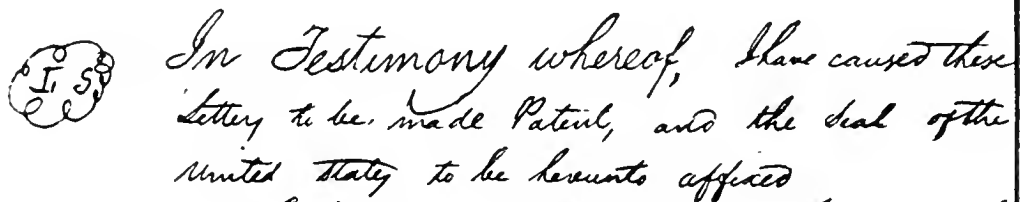 I, S, In Testimony whereof, I have caused these
Letters to be made Patent, and the Seal of the
united States to be hereunto affixed